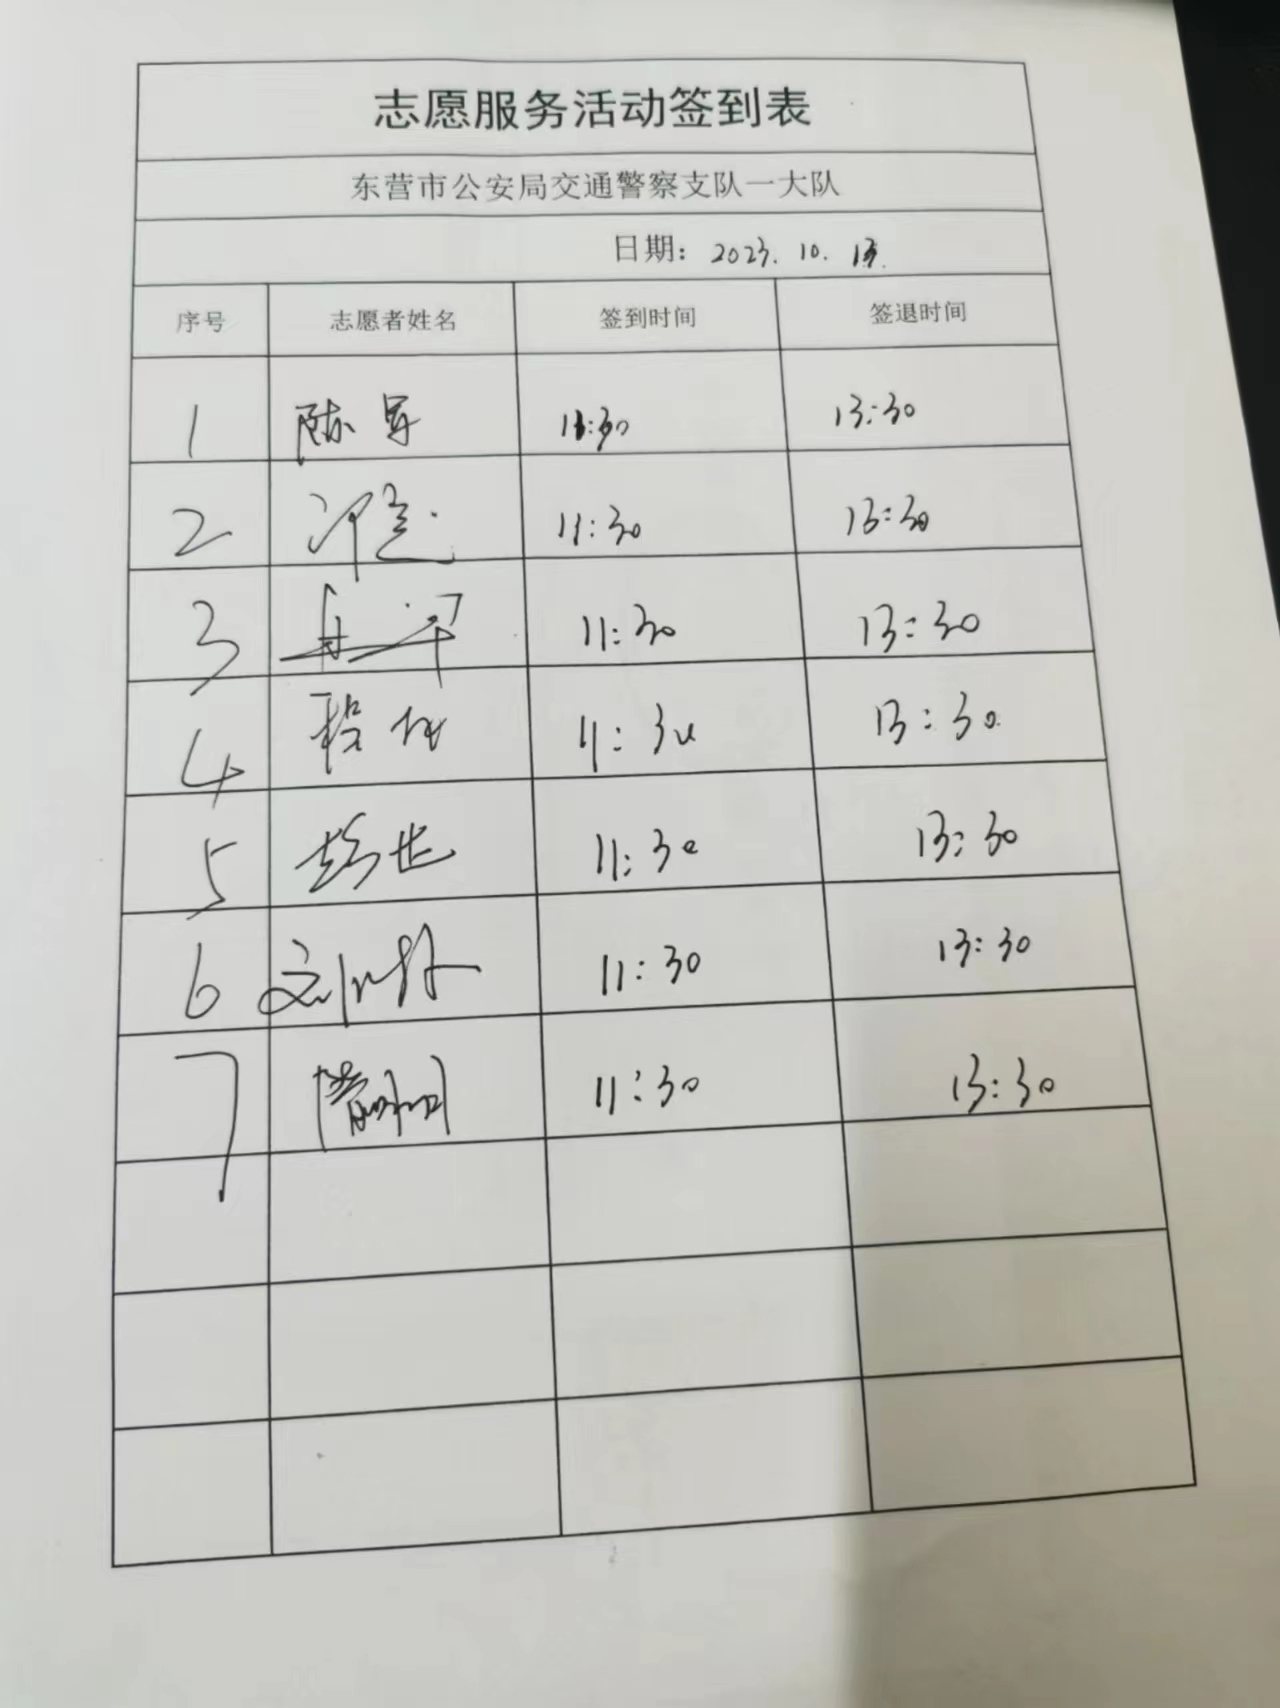 志愿服务活动签到表
东营市公安局交通警察支队一大队
日期：2023.10.13.
序号 志愿者姓名 签到时间 签退时间
1 陈军 11:30 13:30
2 11:30 13:30
3 11:30 13:30
4 11:30 13:30
5 11:30 13:30
6 11:30 13:30
7 11:30 13:30
2